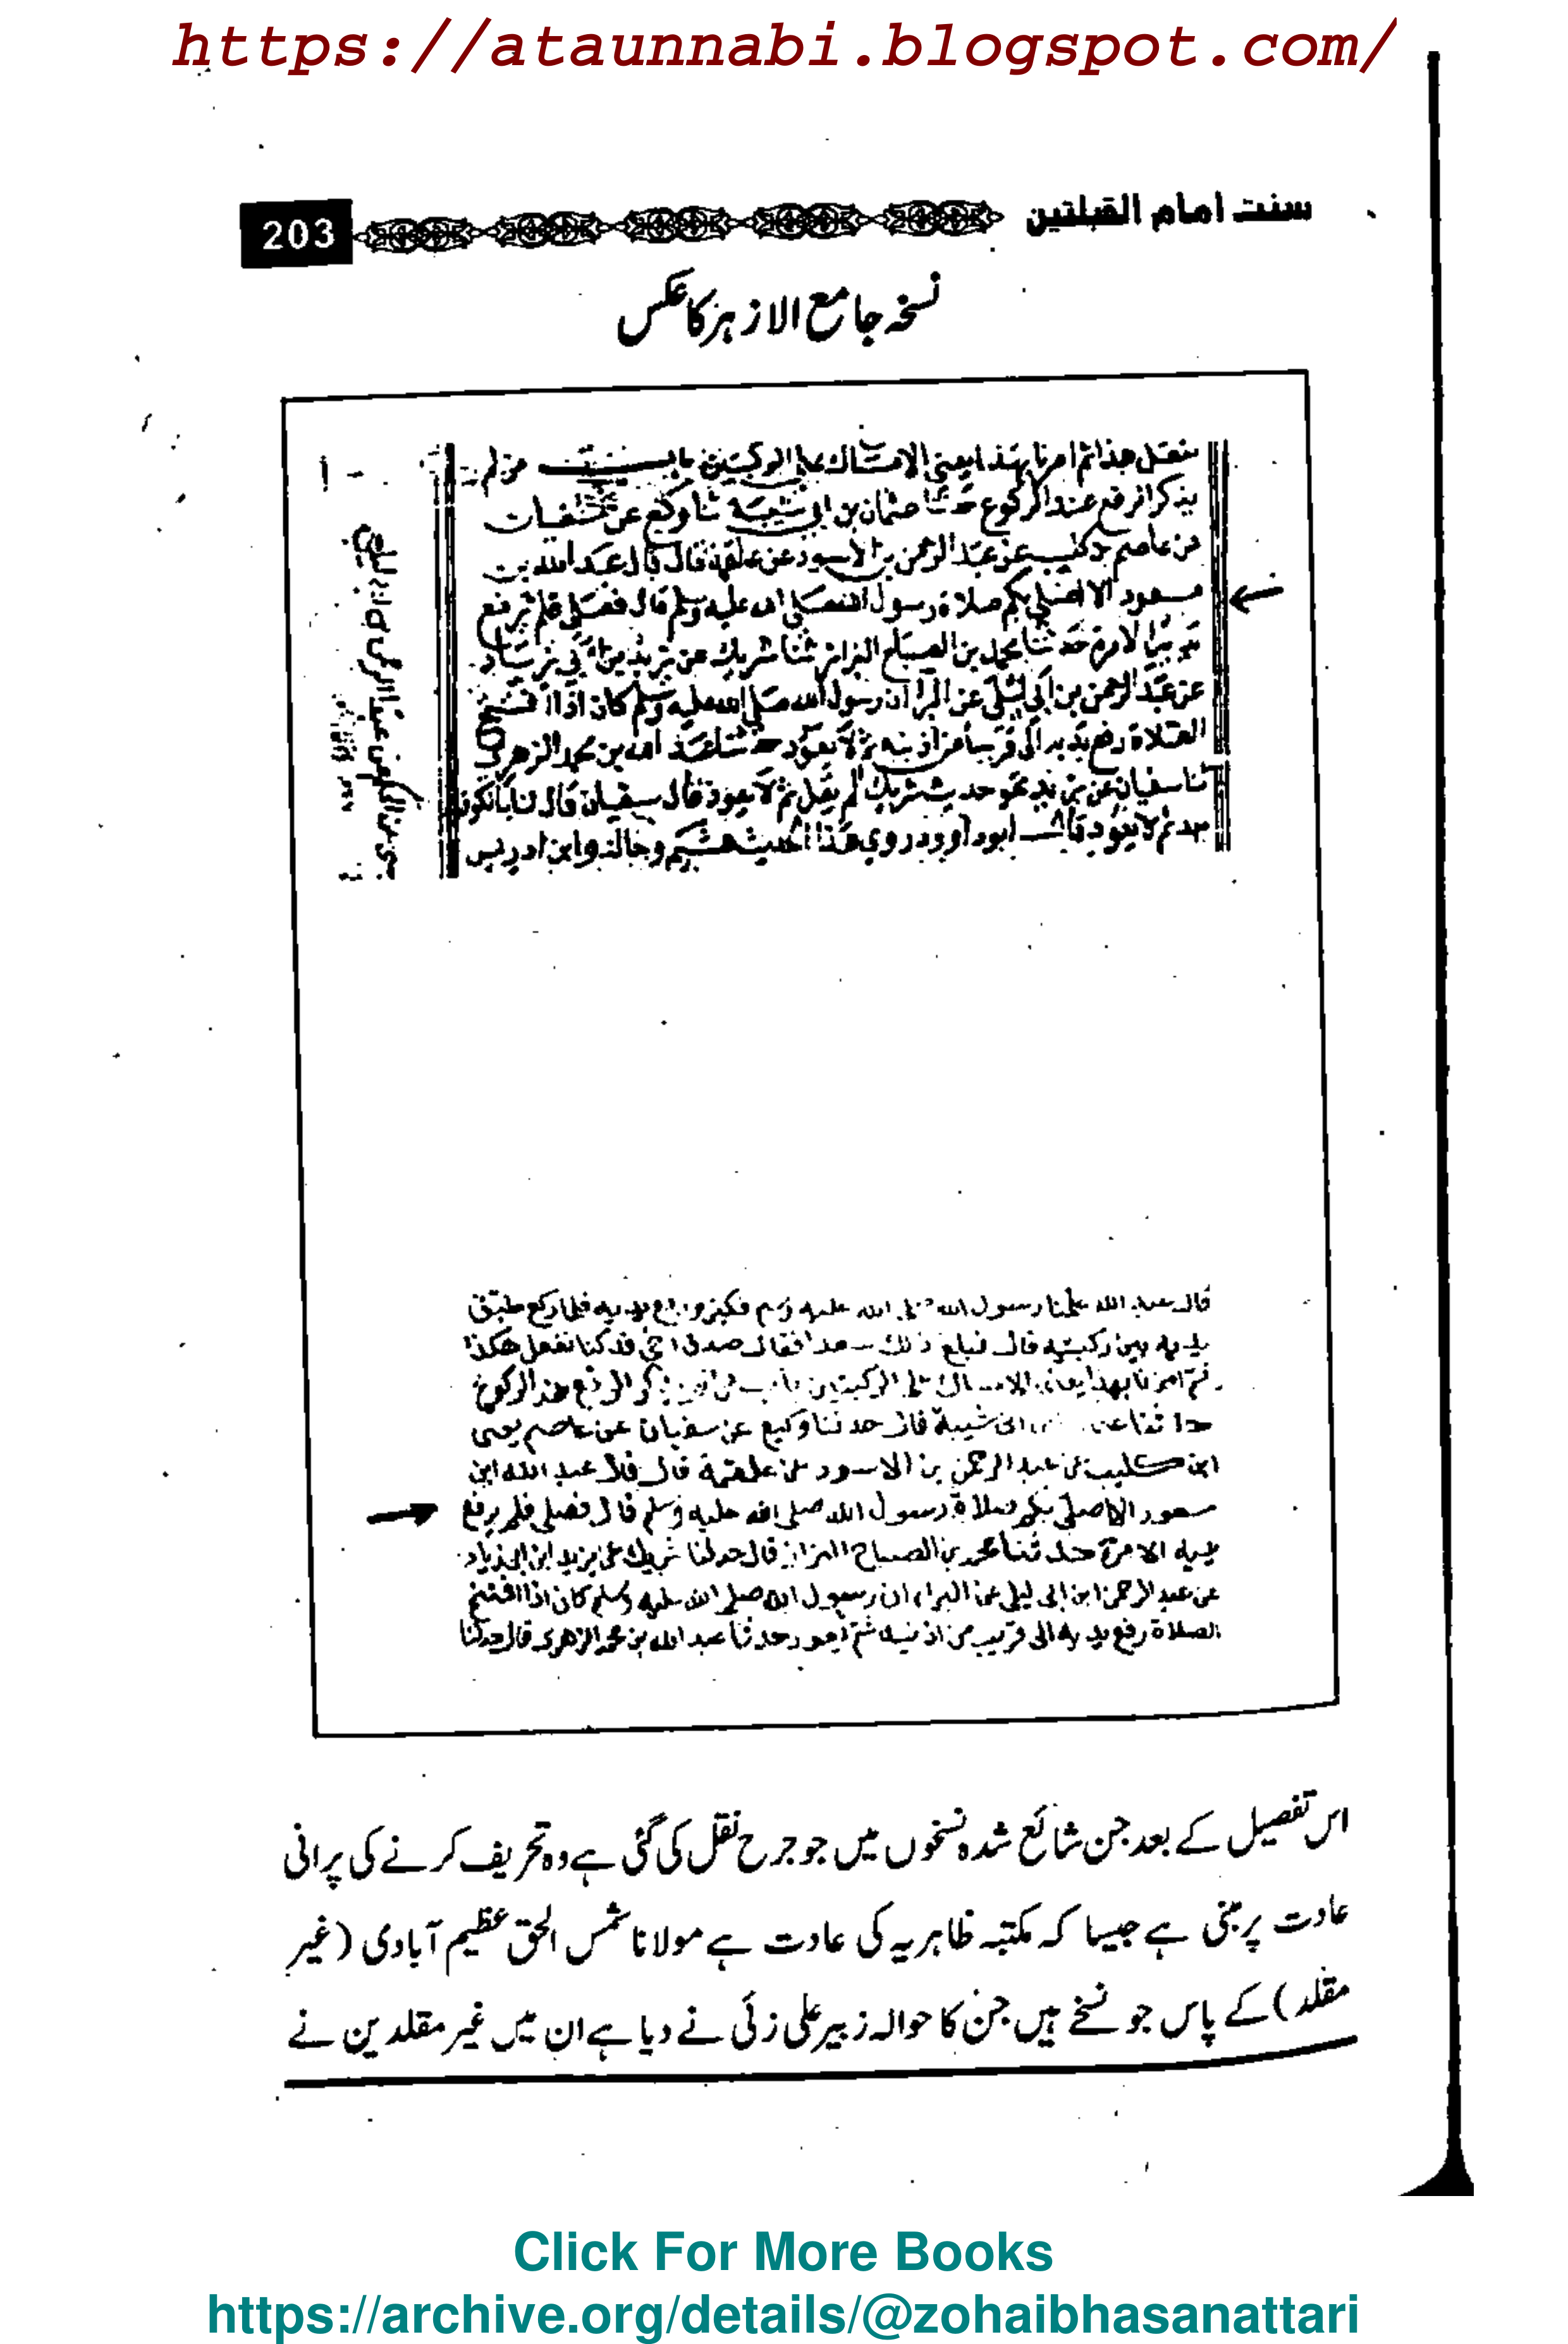 https://ataunnabi.blogspot.com/
سنت امام القبلتین 203
نسخہ جامع الازہر کا عکس
هذا ثم امرنا بهذا يعني الامساك على الركبتين باب من لم
يذكر الرفع عند الركوع حدثنا عثمان بن ابي شيبة ثنا وكيع عن سفيان
عن عاصم بن كليب عن عبد الرحمن بن الاسود عن علقمة قال قال عبد الله بن
مسعود الا اصلي بكم صلاة رسول الله صلى الله عليه وسلم قال فصلى فلم يرفع
يديه الا مرة حدثنا محمد بن الصباح البزاز ثنا شريك عن يزيد بن ابي زياد
عن عبد الرحمن بن ابي ليلى عن البرا ان رسول الله صلى الله عليه وسلم كان اذا افتتح
الصلاة رفع يديه الى قريب من اذنيه ثم لا يعود حدثنا عبد الله بن محمد الزهري
ثنا سفيان عن يزيد نحو حديث شريك لم يقل ثم لا يعود قال سفيان قال لنا بالكوفة
بعد ثم لا يعود قال ابو داوود روي هذا الحديث هشيم وخالد وابن ادريس
قال عبد الله علمنا رسول الله صلى الله عليه وسلم فكبر ورفع يديه فلما ركع طبق
يديه بين ركبتيه قال فبلغ ذلك سعدا فقال صدق اخي قد كنا نفعل هكذا
ثم امرنا بهذا يعني الامساك على الركبتين باب من لم يذكر الرفع عند الركوع
حدثنا ابى شيبة قال حدثنا وكيع عن سفيان عن عاصم يعني
ابن كليب عن عبد الرحمن بن الاسود عن علقمة قال قال عبد الله ابن
مسعود الا اصلي بكم صلاة رسول الله صلى الله عليه وسلم قال فصلى فلم يرفع
يديه الا مرة حدثنا محمد بن الصباح البزاز قال حدثنا شريك عن يزيد ابن ابى زياد
عن عبد الرحمن ابن ابى ليلى عن البراء ان رسول الله صلى الله عليه وسلم كان اذا افتتح
الصلاة رفع يديه الى قريب من اذنيه ثم لا يعود حدثنا عبد الله بن محمد الزهرى قال حدثنا
اس تفصیل کے بعد جن شائع شدہ نسخوں میں جو جرح نقل کی گئی ہے وہ تحریف کرنے کی پرانی
عادت پر مبنی ہے جیسا کہ مکتبہ ظاہریہ کی عادت ہے مولانا شمس الحق عظیم آبادی (غیر
مقلد) کے پاس جو نسخے ہیں جن کا حوالہ زبیر علی زئی نے دیا ہے ان میں غیر مقلدین نے
Click For More Books
https://archive.org/details/@zohaibhasanattari